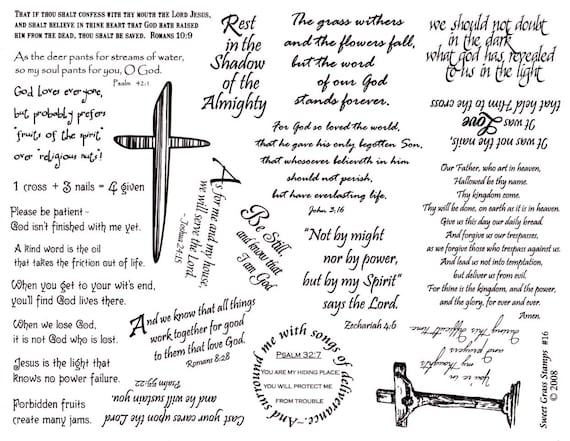 THAT IF THOU SHALT CONFESS WITH THY MOUTH THE LORD JESUS,
AND SHALT BELIEVE IN THINE HEART THAT GOD HATH RAISED
HIM FROM THE DEAD, THOU SHALT BE SAVED. ROMANS 10:9
As the deer pants for streams of water,
so my soul pants for you, O God.
Psalm 42:1
God loves everyone,
but probably prefers
"fruits of the spirit"
over "religious nuts"!
1 cross + 3 nails = 4 given
Please be patient -
God isn't finished with me yet.
A kind word is the oil
that takes the friction out of life.
When you get to your wit's end,
you'll find God lives there.
When we lose God,
it is not God who is lost.
Jesus is the light that
knows no power failure.
Forbidden fruits
create many jams.
Rest
in the
Shadow
of the
Almighty
As for me and my house,
we will serve the Lord.
~Joshua 24:15
Be Still,
and know that
I am God
And we know that all things
work together for good
to them that love God.
Romans 8:28
Cast your cares upon the Lord
and he will sustain you
Psalm 55:22
The grass withers
and the flowers fall,
but the word
of our God
stands forever.
For God so loved the world,
that he gave his only begotten Son,
that whosoever believeth in him
should not perish,
but have everlasting life.
John 3:16
"Not by might
nor by power,
but by my Spirit"
says the Lord.
Zechariah 4:6
And surround me with songs of deliverance~
PSALM 32:7
YOU ARE MY HIDING PLACE;
YOU WILL PROTECT ME
FROM TROUBLE
we should not doubt
in the dark
what God has revealed
to us in the light
It was not the nails,
It was Love
that held Him to the cross
Our Father, who art in heaven,
Hallowed be thy name.
Thy kingdom come.
Thy will be done, on earth as it is in heaven.
Give us this day our daily bread.
And forgive us our trespasses,
as we forgive those who trespass against us.
And lead us not into temptation,
but deliver us from evil.
For thine is the kingdom, and the power,
and the glory, for ever and ever.
Amen.
You're in
my thoughts
and prayers
during this difficult time
Sweet Grass Stamps #16
© 2008